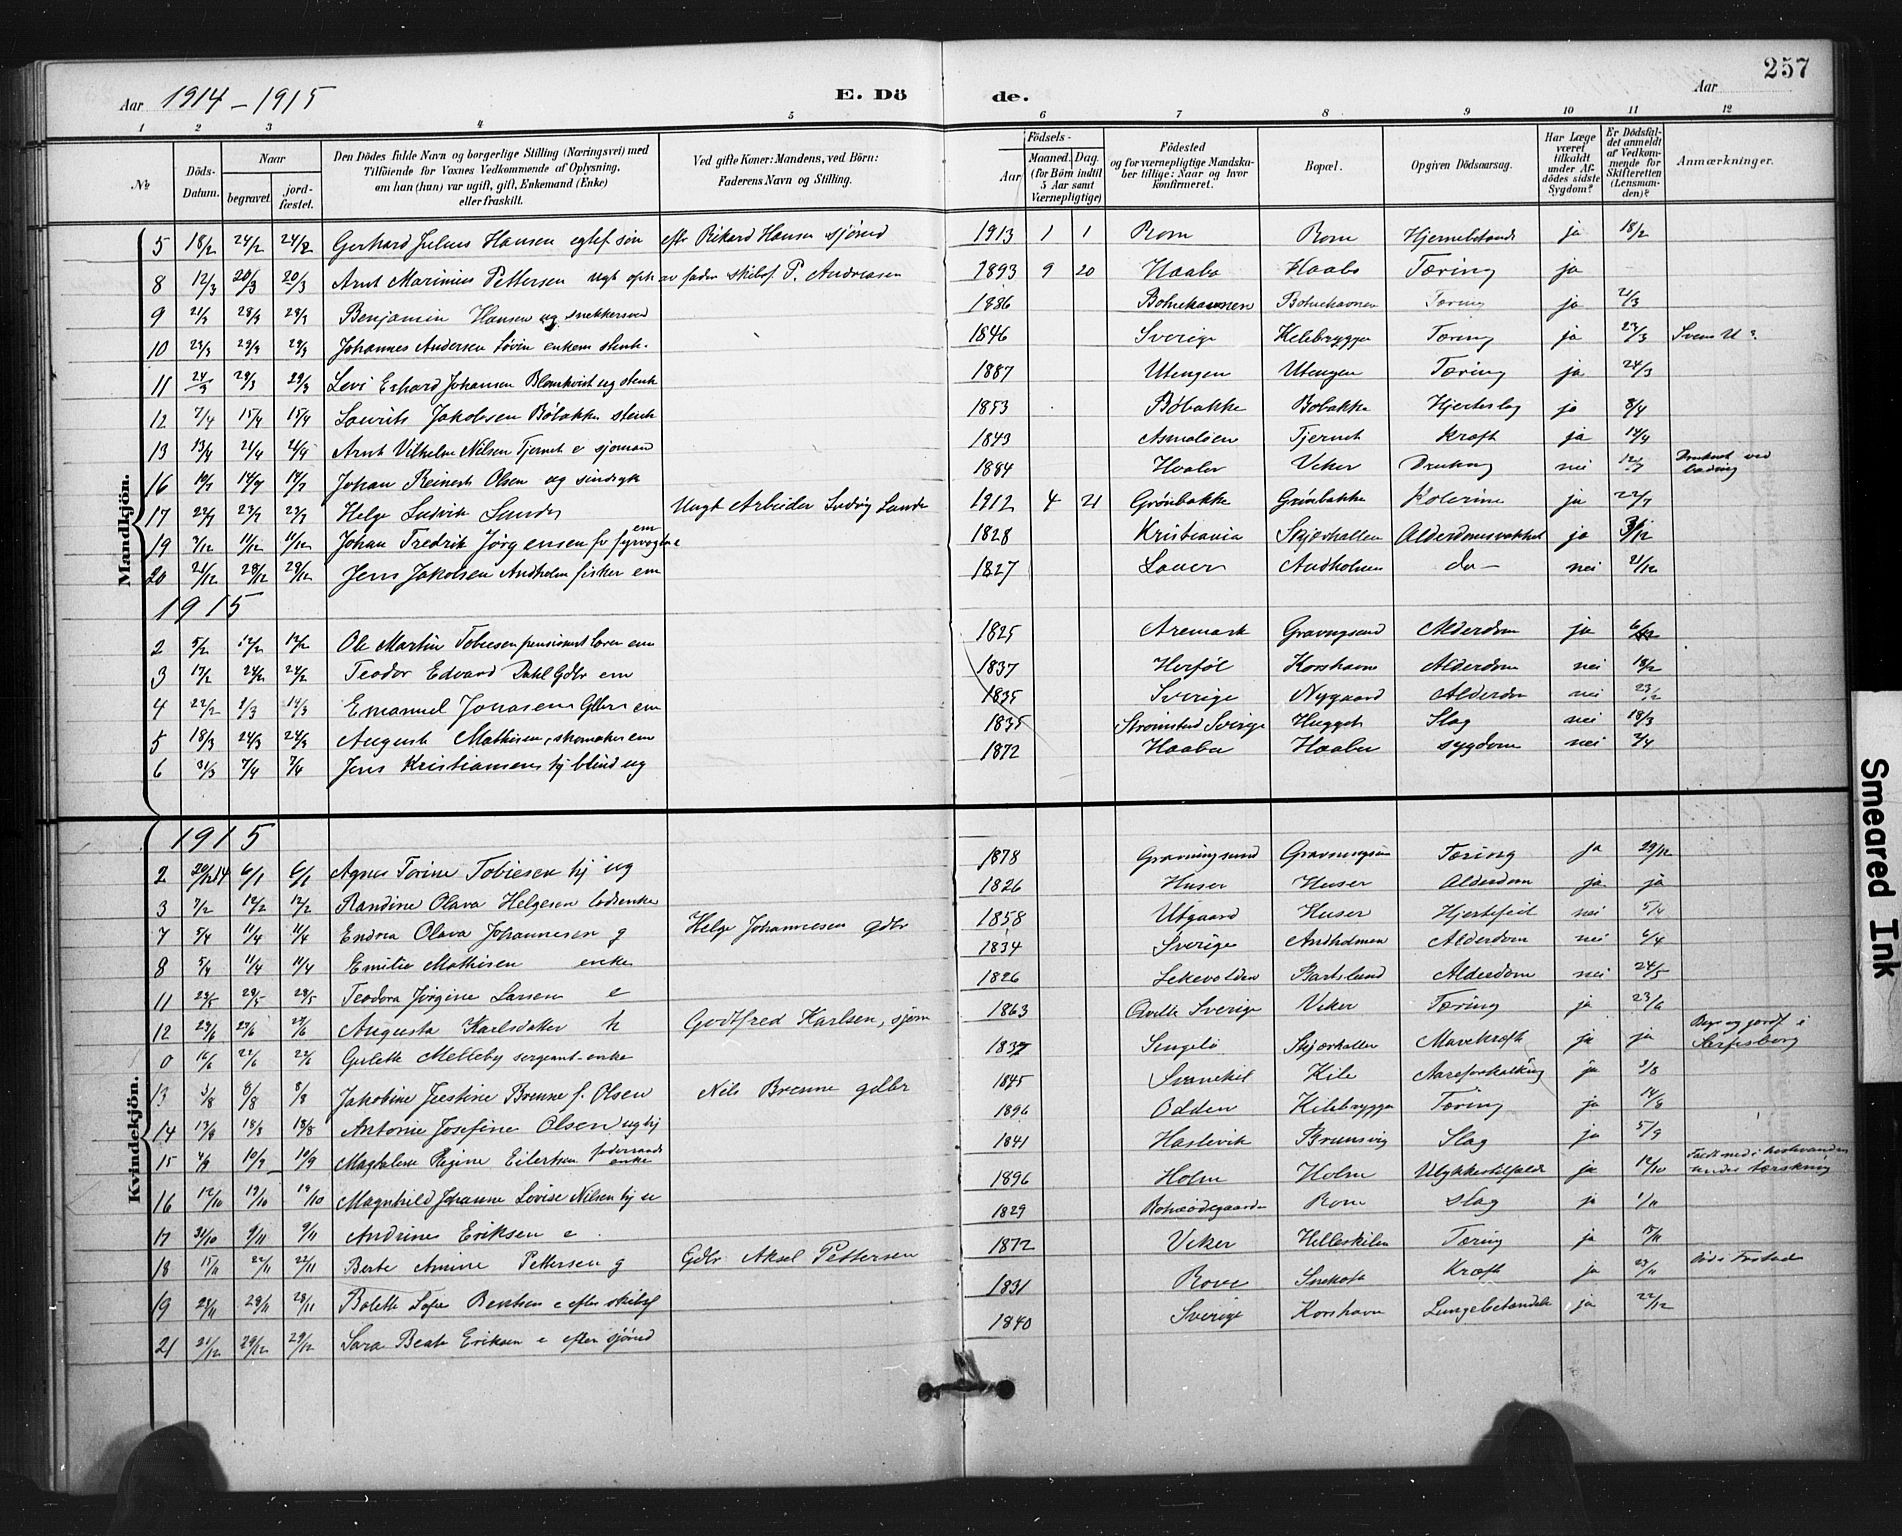 257
Aar 1914-1915 E. Dö de. Aar
1 2 3 4 5 6 7 8 9 10 11 12
№ Döds-Datum. Naar begravet. jordfæstet. Den Dödes fulde Navn og borgerlige Stilling (Næringsvei) med Tilföiende for Voxnes Vedkommende af Oplysning, om han (hun) var ugift, gift, Enkemand (Enke) eller fraskilt. Ved gifte Koner: Mandens, ved Börn: Faderens Navn og Stilling. Födsels- Aar Maaned. Dag. (for Börn indtil 5 Aar samt Værnepligtige) Födested og for værnepligtige Mandskaber tillige: Naar og hvor konfirmeret. Bopæl. Opgiven Dödsaarsag. Har Læge været tilkaldt under Afdödes sidste Sygdom? Er Dödsfaldet anmeldt af Vedkommende for Skifteretten (Lensmanden)? Anmærkninger.
Mandkjön.
5 18/2 24/2 24/2 Gerhard Julius Hansen egtef søn efter Rikard Hansen sjømd 1913 1 1 Rom Rom Hjernebetænd ja 18/2
8 12/3 20/3 20/3 Arnt Marinius Pettersen ugt fader skibsf P. Andreasen 1893 9 20 Haabo Haabo Tæring ja
9 21/3 28/3 28/3 Benjamin Hansen ug snekkersvend 1886 Botnehavnen Botnehavnen Tæring ja 21/3
10 23/3 29/3 29/3 Johannes Andersen Løvin enkem stenh. 1846 Sverige Kilebrygga Tæring ja 23/3
11 24/3 29/3 29/3 Levi Erhard Johansen Blomkvist ug stenh 1887 Utengen Utengen Tæring ja 24/3
12 7/4 15/4 15/4 Laurits Jakobsen Bøbakke stenh 1853 Bøbakke Bøbakke Hjerteslag ja 8/4
13 13/4 21/4 21/4 Arnt Vilhelm Nilsen Tjernet e sjømand 1843 Asmaløen Tjernet Kræft ja 14/4
16 10/7 14/7 14/7 Johan Reinert Olsen ug 1884 Hvaler Viker Drukning nei 12/7 Druknet ved bading
17 22/7 23/7 23/7 Helge Ludvik Lunde Ungt Arbeider Ludvig Lunde 1912 4 21 Grønbakke Grønbakke Kolerine ja 22/7
19 3/12 11/12 11/12 Johan Fredrik Jørgensen fv fyrvogter em 1828 Kristiania Skjærhallen Alderdomssvakhet ja 3/12
20 21/12 28/12 28/12 Jens Jakobsen Andholm fisker em 1827 Lauer Andholmen do - nei 21/12
1915
2 5/2 12/2 12/2 Ole Martin Tobiesen pensionert em 1825 Aremark Gravningsund Alderdom ja 6/2
3 17/2 24/2 24/2 Teodor Edvard Dahl Gdbr em 1837 Herføl Korshavn Alderdom nei 18/2
4 22/2 1/3 14/3 Emanuel Jonasen Gdbr em 1835 Sverige Nygaard Alderdom nei 23/2
5 18/3 24/3 24/3 August Mathisen, skomaker em 1835 Strømstad Sverige Hugget Slag nei 18/3
6 31/3 7/4 7/4 Jens Kristiansen hj blind ug 1872 Haabu Haabu sygdom nei 2/4
Kvindekjön.
1915
2 29/12 14 6/1 6/1 Agnes Torine Tobiesen hj ug 1878 Gravningsund Gravningsun Tæring ja 29/12
3 7/2 12/2 12/2 Randine Olava Helgesen lodsenke 1826 Huser Huser Alderdom ja ja
7 5/4 11/4 11/4 Endrea Olava Johannesen g Helge Johannesen gdbr 1858 Utgaard Huser Hjertefeil nei 5/4
8 5/4 11/4 11/4 Emilie Mathisen enke 1834 Sverige Andholmen Alderdom nei 6/4
11 23/5 29/5 29/5 Teodora Jørgine Larsen e 1826 Lekevolden Barlslund Alderdom nei 24/5
12 23/6 27/6 27/6 Augusta Karlsdatter h Godtfred Karlsen, sjøm 1863 Qville Sverige Viker Tæring ja 23/6
0 16/6 22/6 22/6 Gulette Melleby sergeant-enke 1837 Singelö Skjærhallen Mavekræft ja ja Begr og jordf i Sarpsborg
13 3/8 8/8 8/8 Jakobine Justine Brenne f. Olsen Nils Brenne gdbr 1845 Svanekil Kile Aareforkalkning ja 3/8
14 13/8 18/8 18/8 Antonie Josefine Olsen ug hj 1896 Odden Kilebrygga Tæring ja 14/8
15 4/9 10/9 10/9 Magdalene Regine Eilertsen enke 1841 Haslevik Brunsvig Slag ja 5/9
16 12/10 19/10 19/10 Magnhild Johanne Lovise Nilsen hj u 1896 Holm Holm Ulykkestilfælde ja 12/10 Faldt ned i hestvandr under tærskning
17 31/10 9/11 9/11 Andrine Eriksen e 1829 Rom Slag ja 1/11
18 15/11 22/11 22/11 Berte Amine Pettersen g Gdbr Aksel Pettersen 1872 Viker Helleskilen Tæring ja 15/11
19 23/11 28/11 28/11 Bolette Sofie Bentsen e efter skibsf 1831 Rove Snekot Kræft ja 23/11
21 21/12 29/12 29/12 Sara Beate Eriksen e efter sjømd 1840 Sverige Korshavn Lungebetændelse ja 22/12
Smeared Ink